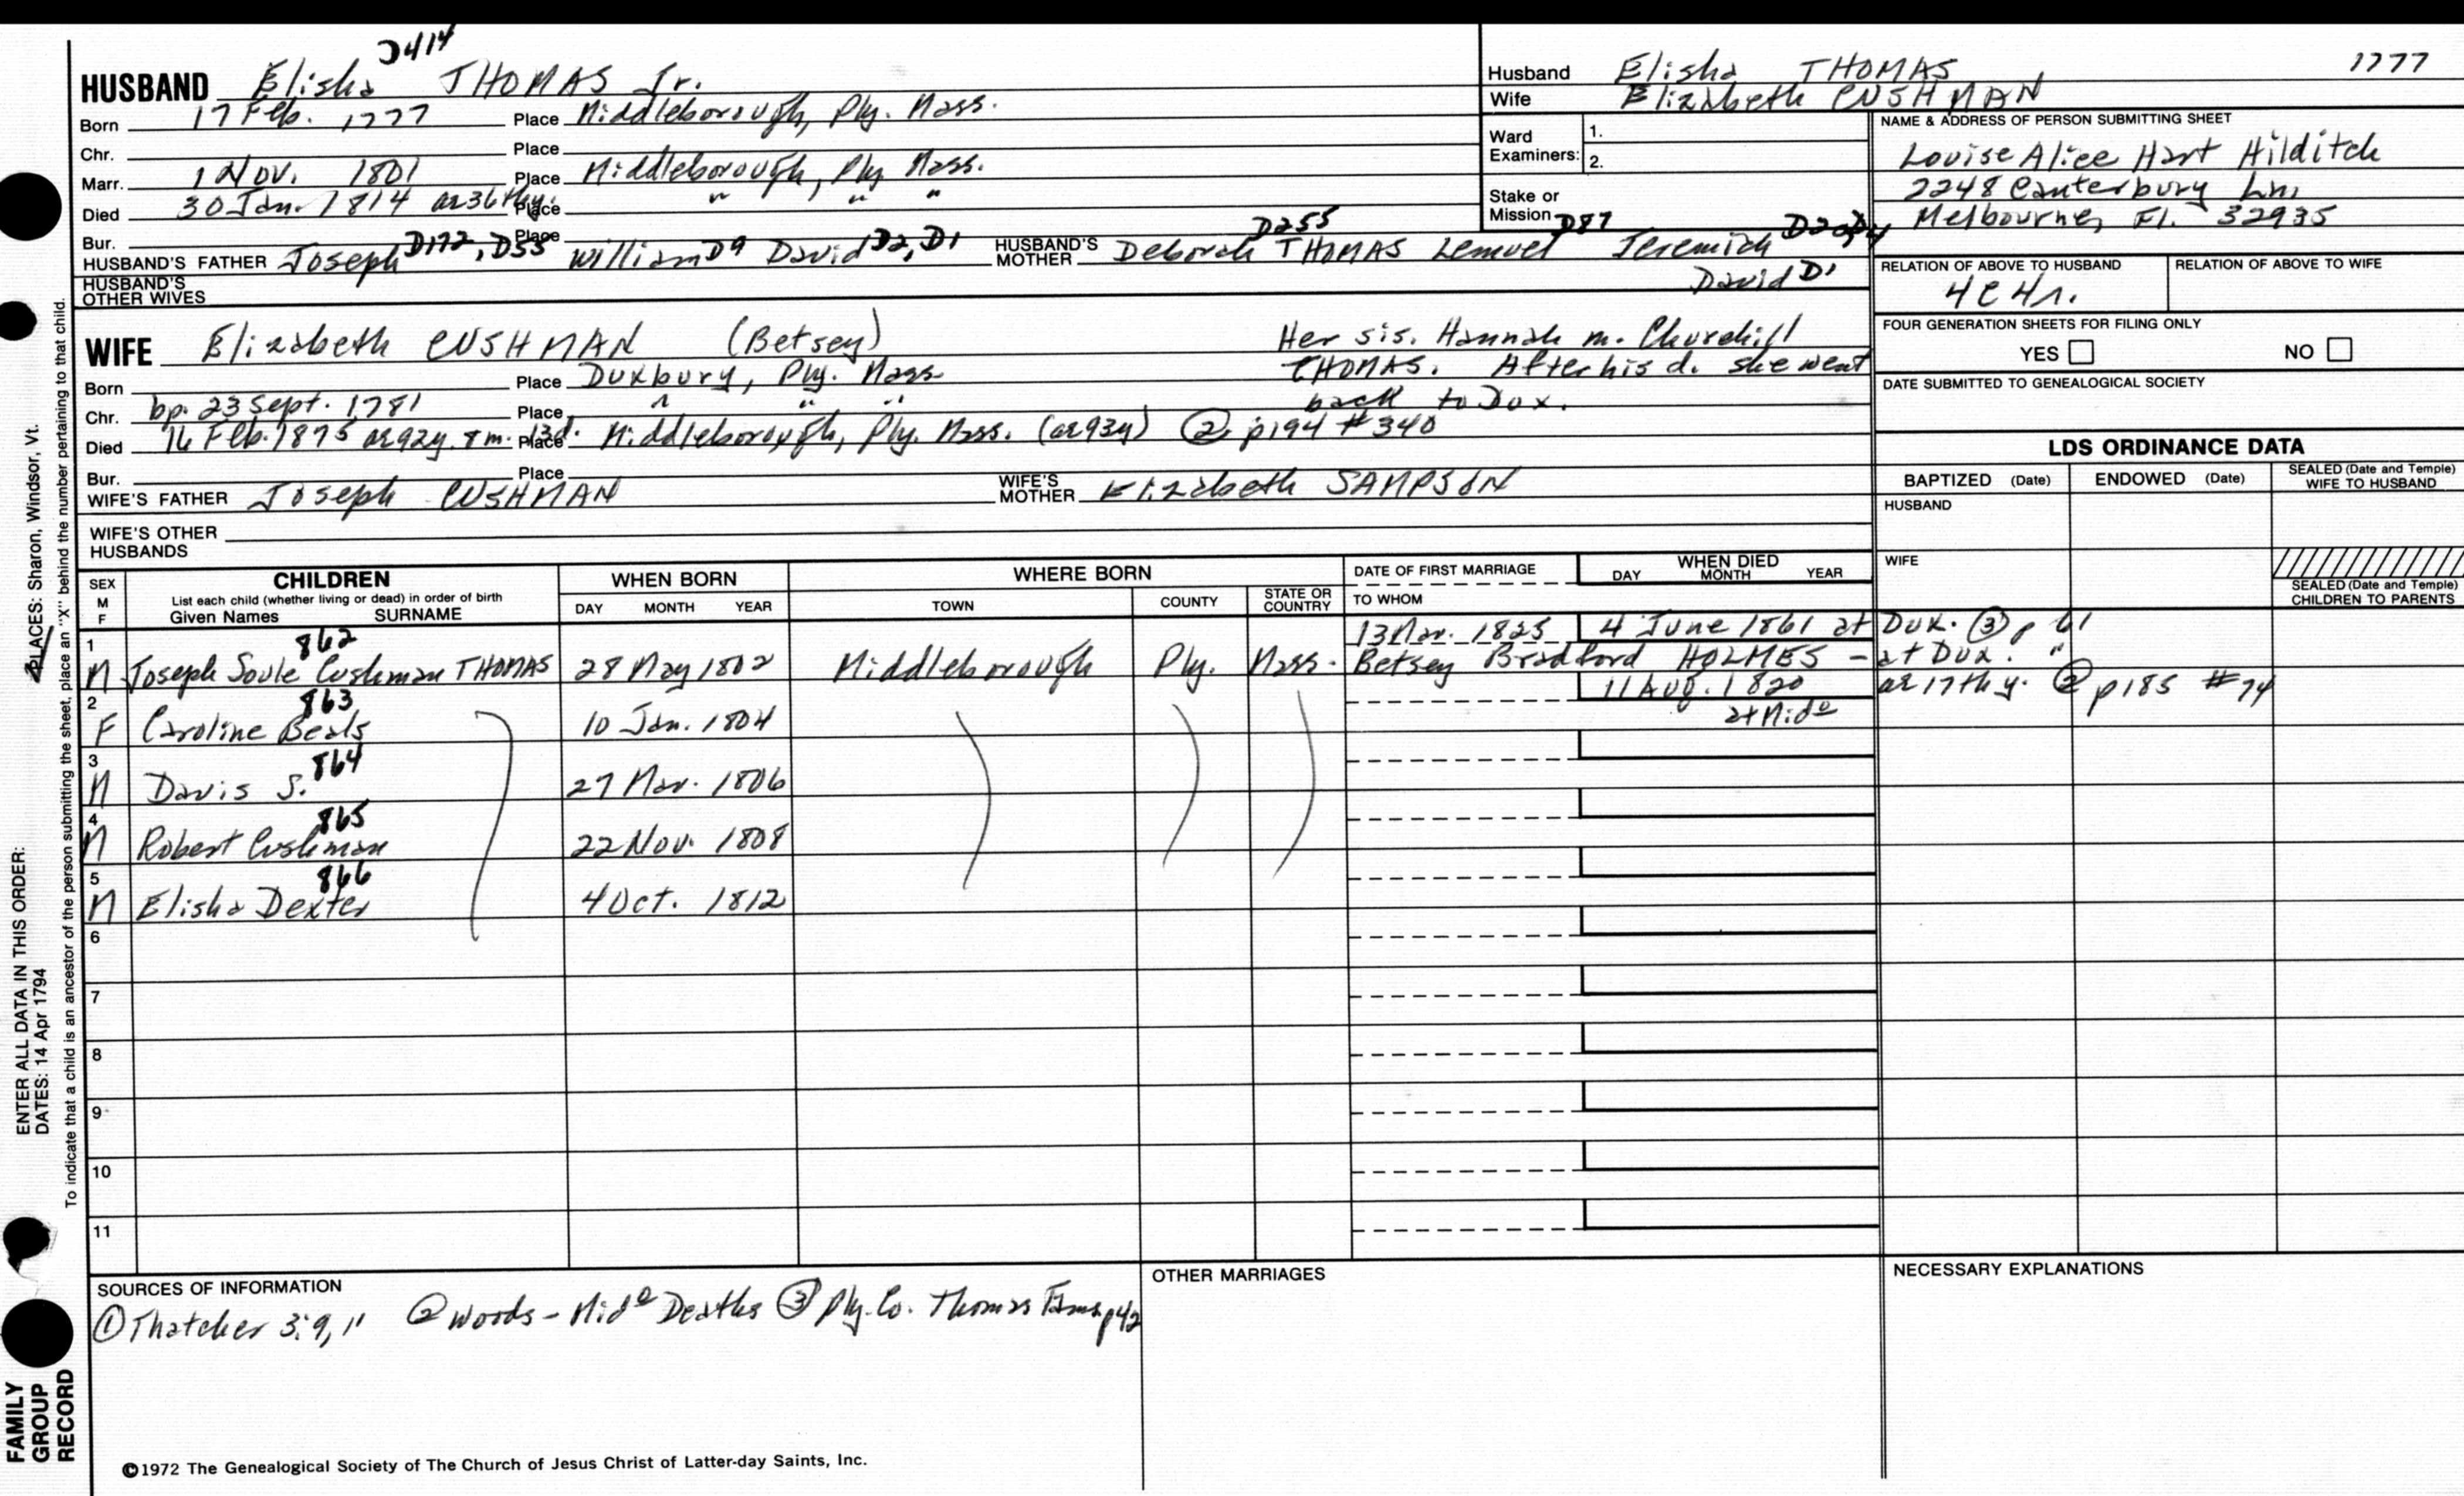 HUSBAND Elisha THOMAS Jr.
Born 17 Feb. 1777 Place Middleborough, Ply. Mass.
Chr. Place
Marr. 1 Nov. 1801 Place Middleborough, Ply Mass.
Died 30 Jan. 1814 ae 36thy. Place " " "
Bur. Place
HUSBAND'S FATHER Joseph D172, D55 William D9 David D2, D1 HUSBAND'S MOTHER Deborah THOMAS D255 Lemuel D87 Jeremiah
David D1
HUSBAND'S OTHER WIVES
Husband Elisha THOMAS 1777
Wife Elizabeth CUSHMAN
Ward Examiners: 1.
2.
Stake or Mission
NAME & ADDRESS OF PERSON SUBMITTING SHEET
Louise Alice Hart Hilditch
2248 Canterbury Ln.
Melbourne, Fl. 32935
RELATION OF ABOVE TO HUSBAND RELATION OF ABOVE TO WIFE
4C4r.
FOUR GENERATION SHEETS FOR FILING ONLY
YES NO
DATE SUBMITTED TO GENEALOGICAL SOCIETY
WIFE Elizabeth CUSHMAN (Betsey)
Her sis. Hannah m. Churchill
THOMAS. After his d. she went
back to Dux.
Born Place Duxbury, Ply. Mass
Chr. bp. 23 Sept. 1781 Place " " "
Died 16 Feb. 1875 ae 92y. 8m. 13d. Place Middleborough, Ply. Mass. (ae 93y) ② p194 #340
Bur. Place
WIFE'S FATHER Joseph CUSHMAN WIFE'S MOTHER Elizabeth SAMPSON
WIFE'S OTHER HUSBANDS
LDS ORDINANCE DATA
BAPTIZED (Date) ENDOWED (Date) SEALED (Date and Temple) WIFE TO HUSBAND
HUSBAND
WIFE
SEALED (Date and Temple) CHILDREN TO PARENTS
SEX M F CHILDREN List each child (whether living or dead) in order of birth Given Names SURNAME
WHEN BORN DAY MONTH YEAR
WHERE BORN TOWN COUNTY STATE OR COUNTRY
DATE OF FIRST MARRIAGE TO WHOM
WHEN DIED DAY MONTH YEAR
862 13 Mar. 1825 4 June 1861 at Dux. ③ p 61
1 M Joseph Soule Cushman THOMAS 28 May 1802 Middleborough Ply. Mass. Betsey Bradford HOLMES - at Dux. "
863 11 Aug. 1820 ae 17thy. ② p185 #74
2 F Caroline Beals 10 Jan. 1804 at Mido
864
3 M Davis S. 27 Mar. 1806
865
4 M Robert Cushman 22 Nov. 1808
866
5 M Elisha Dexter 4 Oct. 1812
6
7
8
9
10
11
SOURCES OF INFORMATION
① Thatcher 3:9,11 ② Woods - Mido Deaths ③ Ply. Co. Thomas Fams p42
OTHER MARRIAGES
NECESSARY EXPLANATIONS
©1972 The Genealogical Society of The Church of Jesus Christ of Latter-day Saints, Inc.
FAMILY GROUP RECORD
ENTER ALL DATA IN THIS ORDER:
DATES: 14 Apr 1794
PLACES: Sharon, Windsor, Vt.
To indicate that a child is an ancestor of the person submitting the sheet, place an "X" behind the number pertaining to that child.